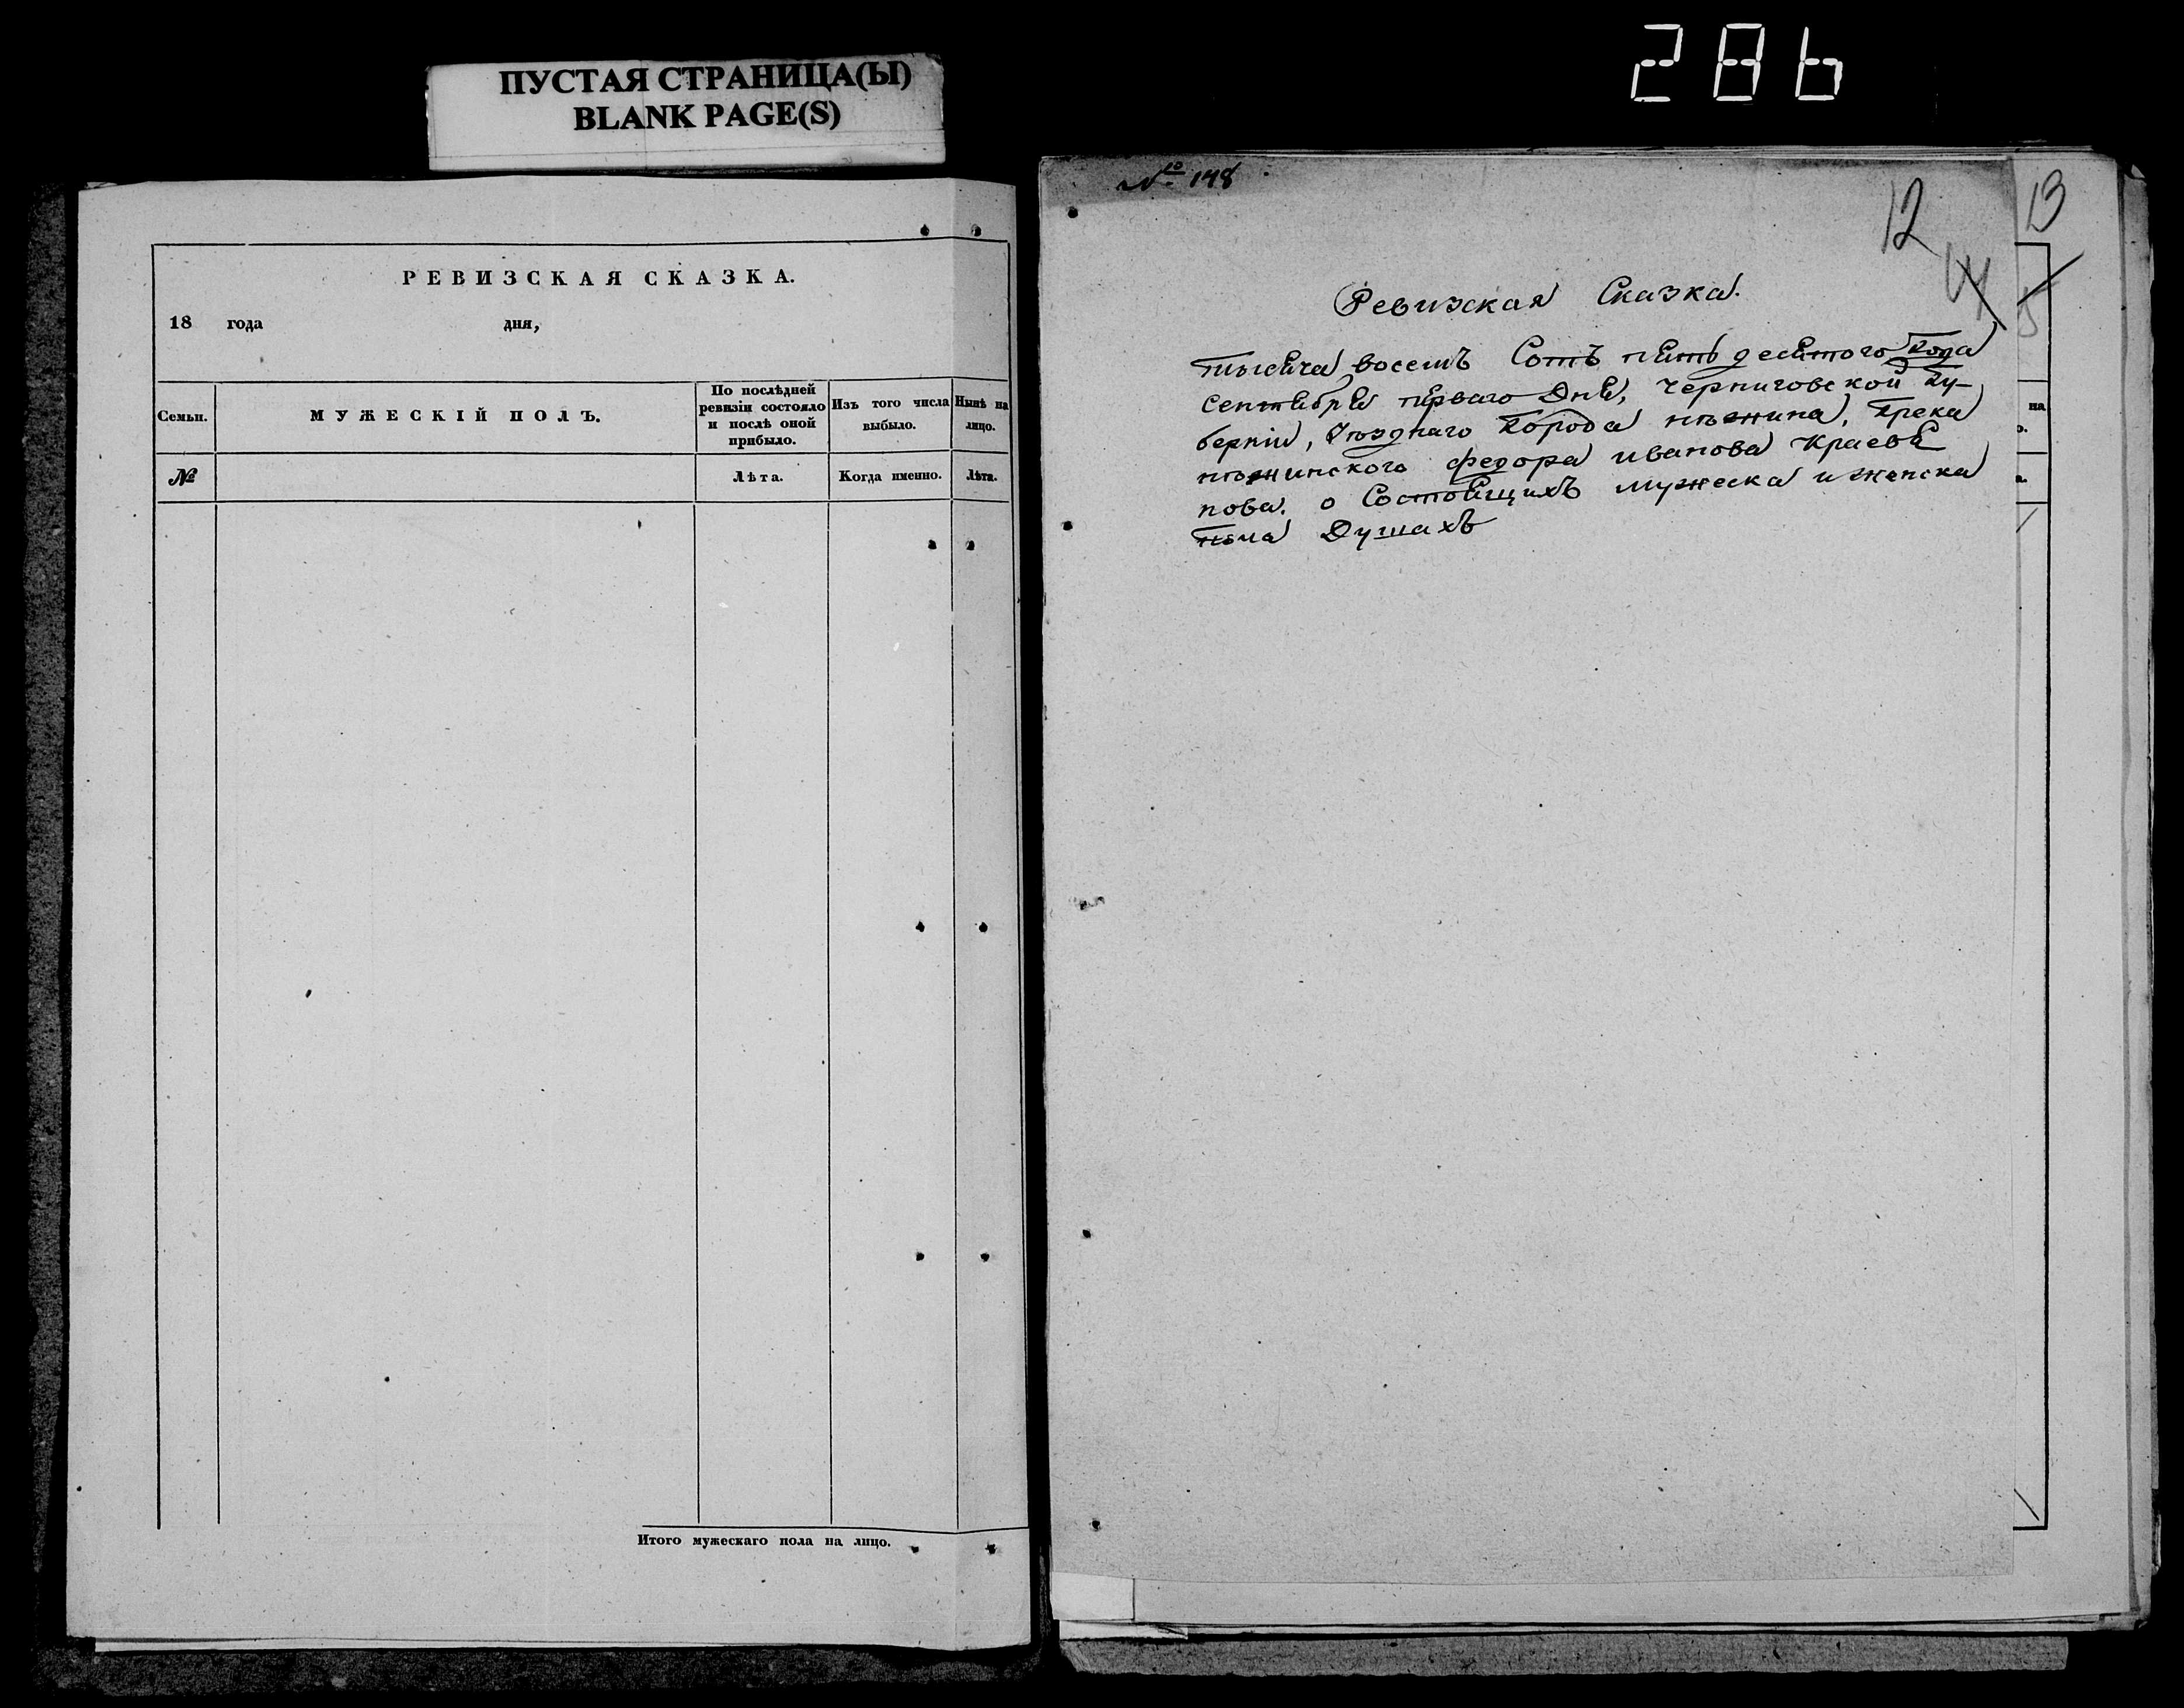 ПУСТАЯ СТРАНИЦА(Ы)
BLANK PAGE(S)
286
РЕВИЗСКАЯ СКАЗКА.
18 года дня,
Семьи.
МУЖЕСКІЙ ПОЛЪ.
По послѣдней
ревизіи состояло
и послѣ оной
прибыло.
Изъ того числа
выбыло.
Нынѣ на
лицо.
№
Лѣта.
Когда именно.
Лѣта.
Итого мужескаго пола на лицо.
№ 148
12
13
Ревизская Сказка.
тысяча восемъ Сотъ пять десятого Года
Сентября первого Дня, Черниговской Гу-
берніи, Уѣзднаго Города нѣжина, Грека
нѣжинского федора иванова Краевя
нова. о Состоящихъ мужеска и женска
пола Душахъ
на